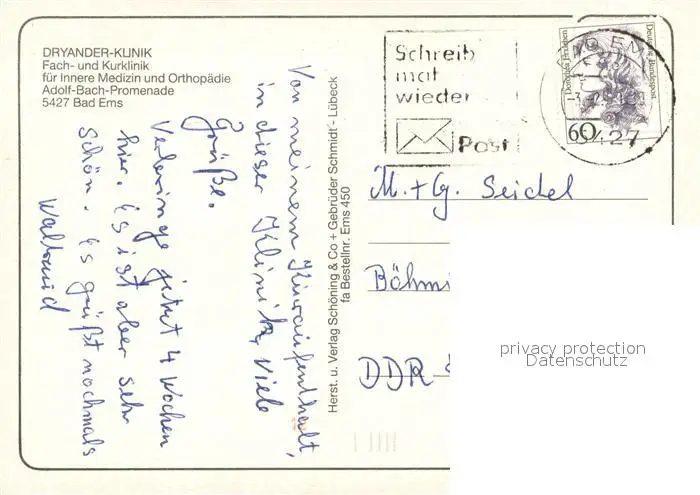 DRYANDER-KLINIK
Fach- und Kurklinik
für Innere Medizin und Orthopädie
Adolf-Bach-Promenade
5427 Bad Ems
Von meinem Kuraufenthalt,
in dieser Klinik, viele
Grüße.
Verbringe jetzt 4 Wochen
hier. Es ist aber sehr
Schön. Es grüßt nochmals
Waltraud
Herst. u. Verlag Schöning & Co + Gebrüder Schmidt - Lübeck
fa Bestellnr. Ems 450
Schreib
mal
wieder
Post
Deutsche Bundespost
60
5427
M. + G. Seidel
Böhmi
DDR
privacy protection
Datenschutz